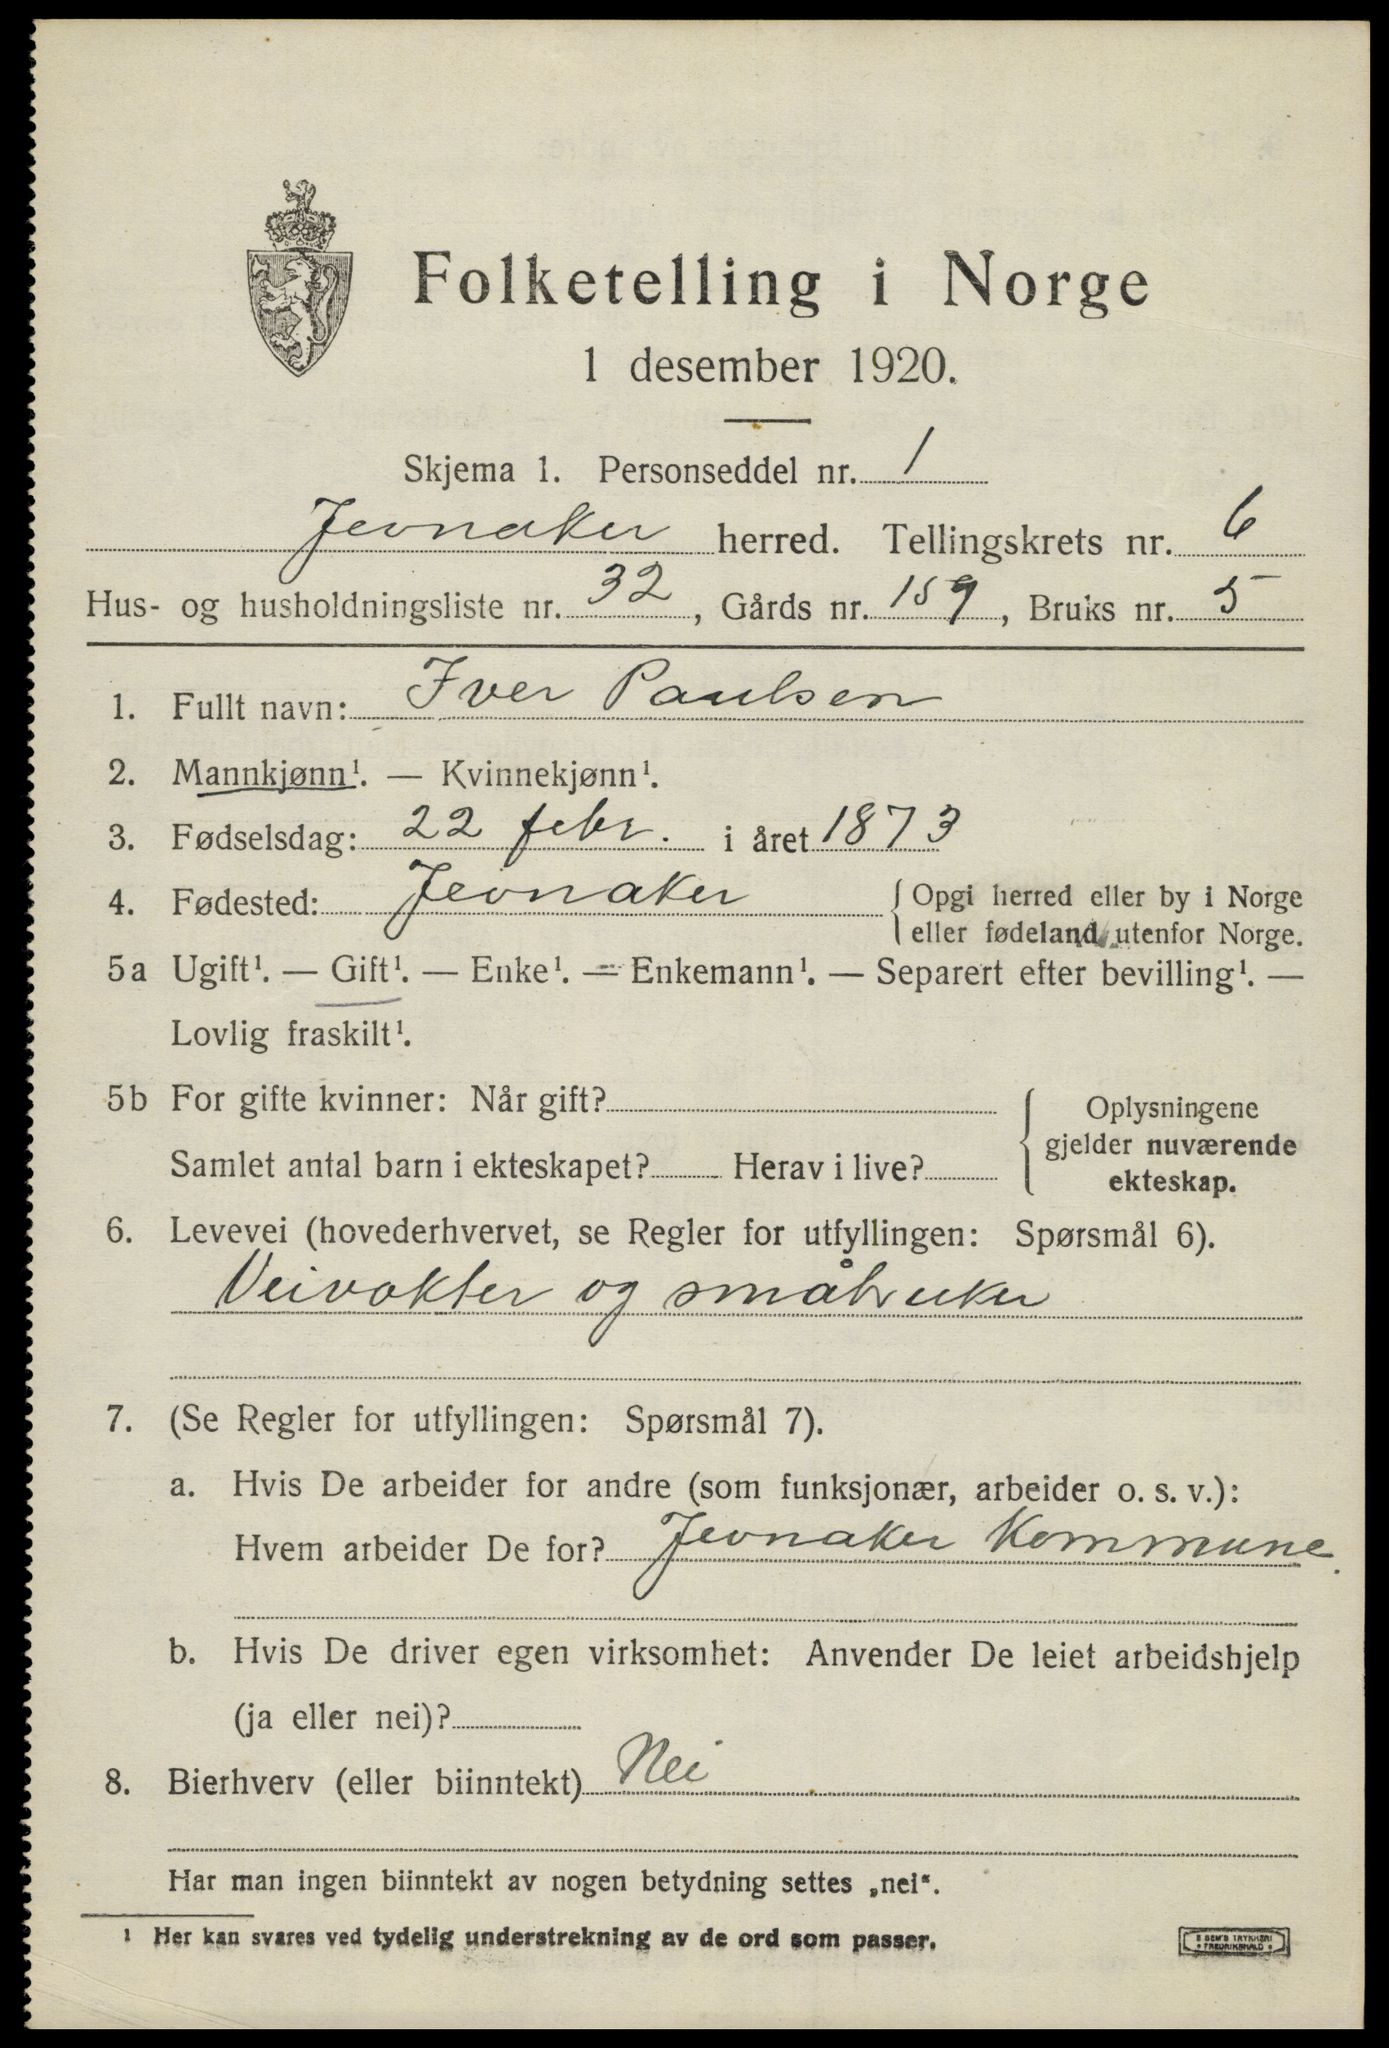 Folketelling i Norge
1 desember 1920.
Skjema 1. Personseddel nr. 1
Jevnaker herred. Tellingskrets nr. 6
Hus- og husholdningsliste nr. 32, Gårds nr. 159, Bruks nr. 5
1. Fullt navn: Iver Paulsen
2. Mannkjønn¹. — Kvinnekjønn¹.
3. Fødselsdag: 22 febr. i året 1873
4. Fødested: Jevnaker { Opgi herred eller by i Norge
eller fødeland utenfor Norge.
5a Ugift¹. — Gift¹. — Enke¹. — Enkemann¹. — Separert efter bevilling¹. —
Lovlig fraskilt¹.
5b For gifte kvinner: Når gift? { Oplysningene
gjelder nuværende
Samlet antal barn i ekteskapet? Herav i live? ekteskap.
6. Levevei (hovederhvervet, se Regler for utfyllingen: Spørsmål 6).
Veivokter og småbruker
7. (Se Regler for utfyllingen: Spørsmål 7).
a. Hvis De arbeider for andre (som funksjonær, arbeider o. s. v.):
Hvem arbeider De for? Jevnaker Kommune.
b. Hvis De driver egen virksomhet: Anvender De leiet arbeidshjelp
(ja eller nei)?
8. Bierhverv (eller biinntekt) Nei
Har man ingen biinntekt av nogen betydning settes „nei“.
¹ Her kan svares ved tydelig understrekning av de ord som passer.
E SEM'S TRYKKERI
FREDRIKSHALD